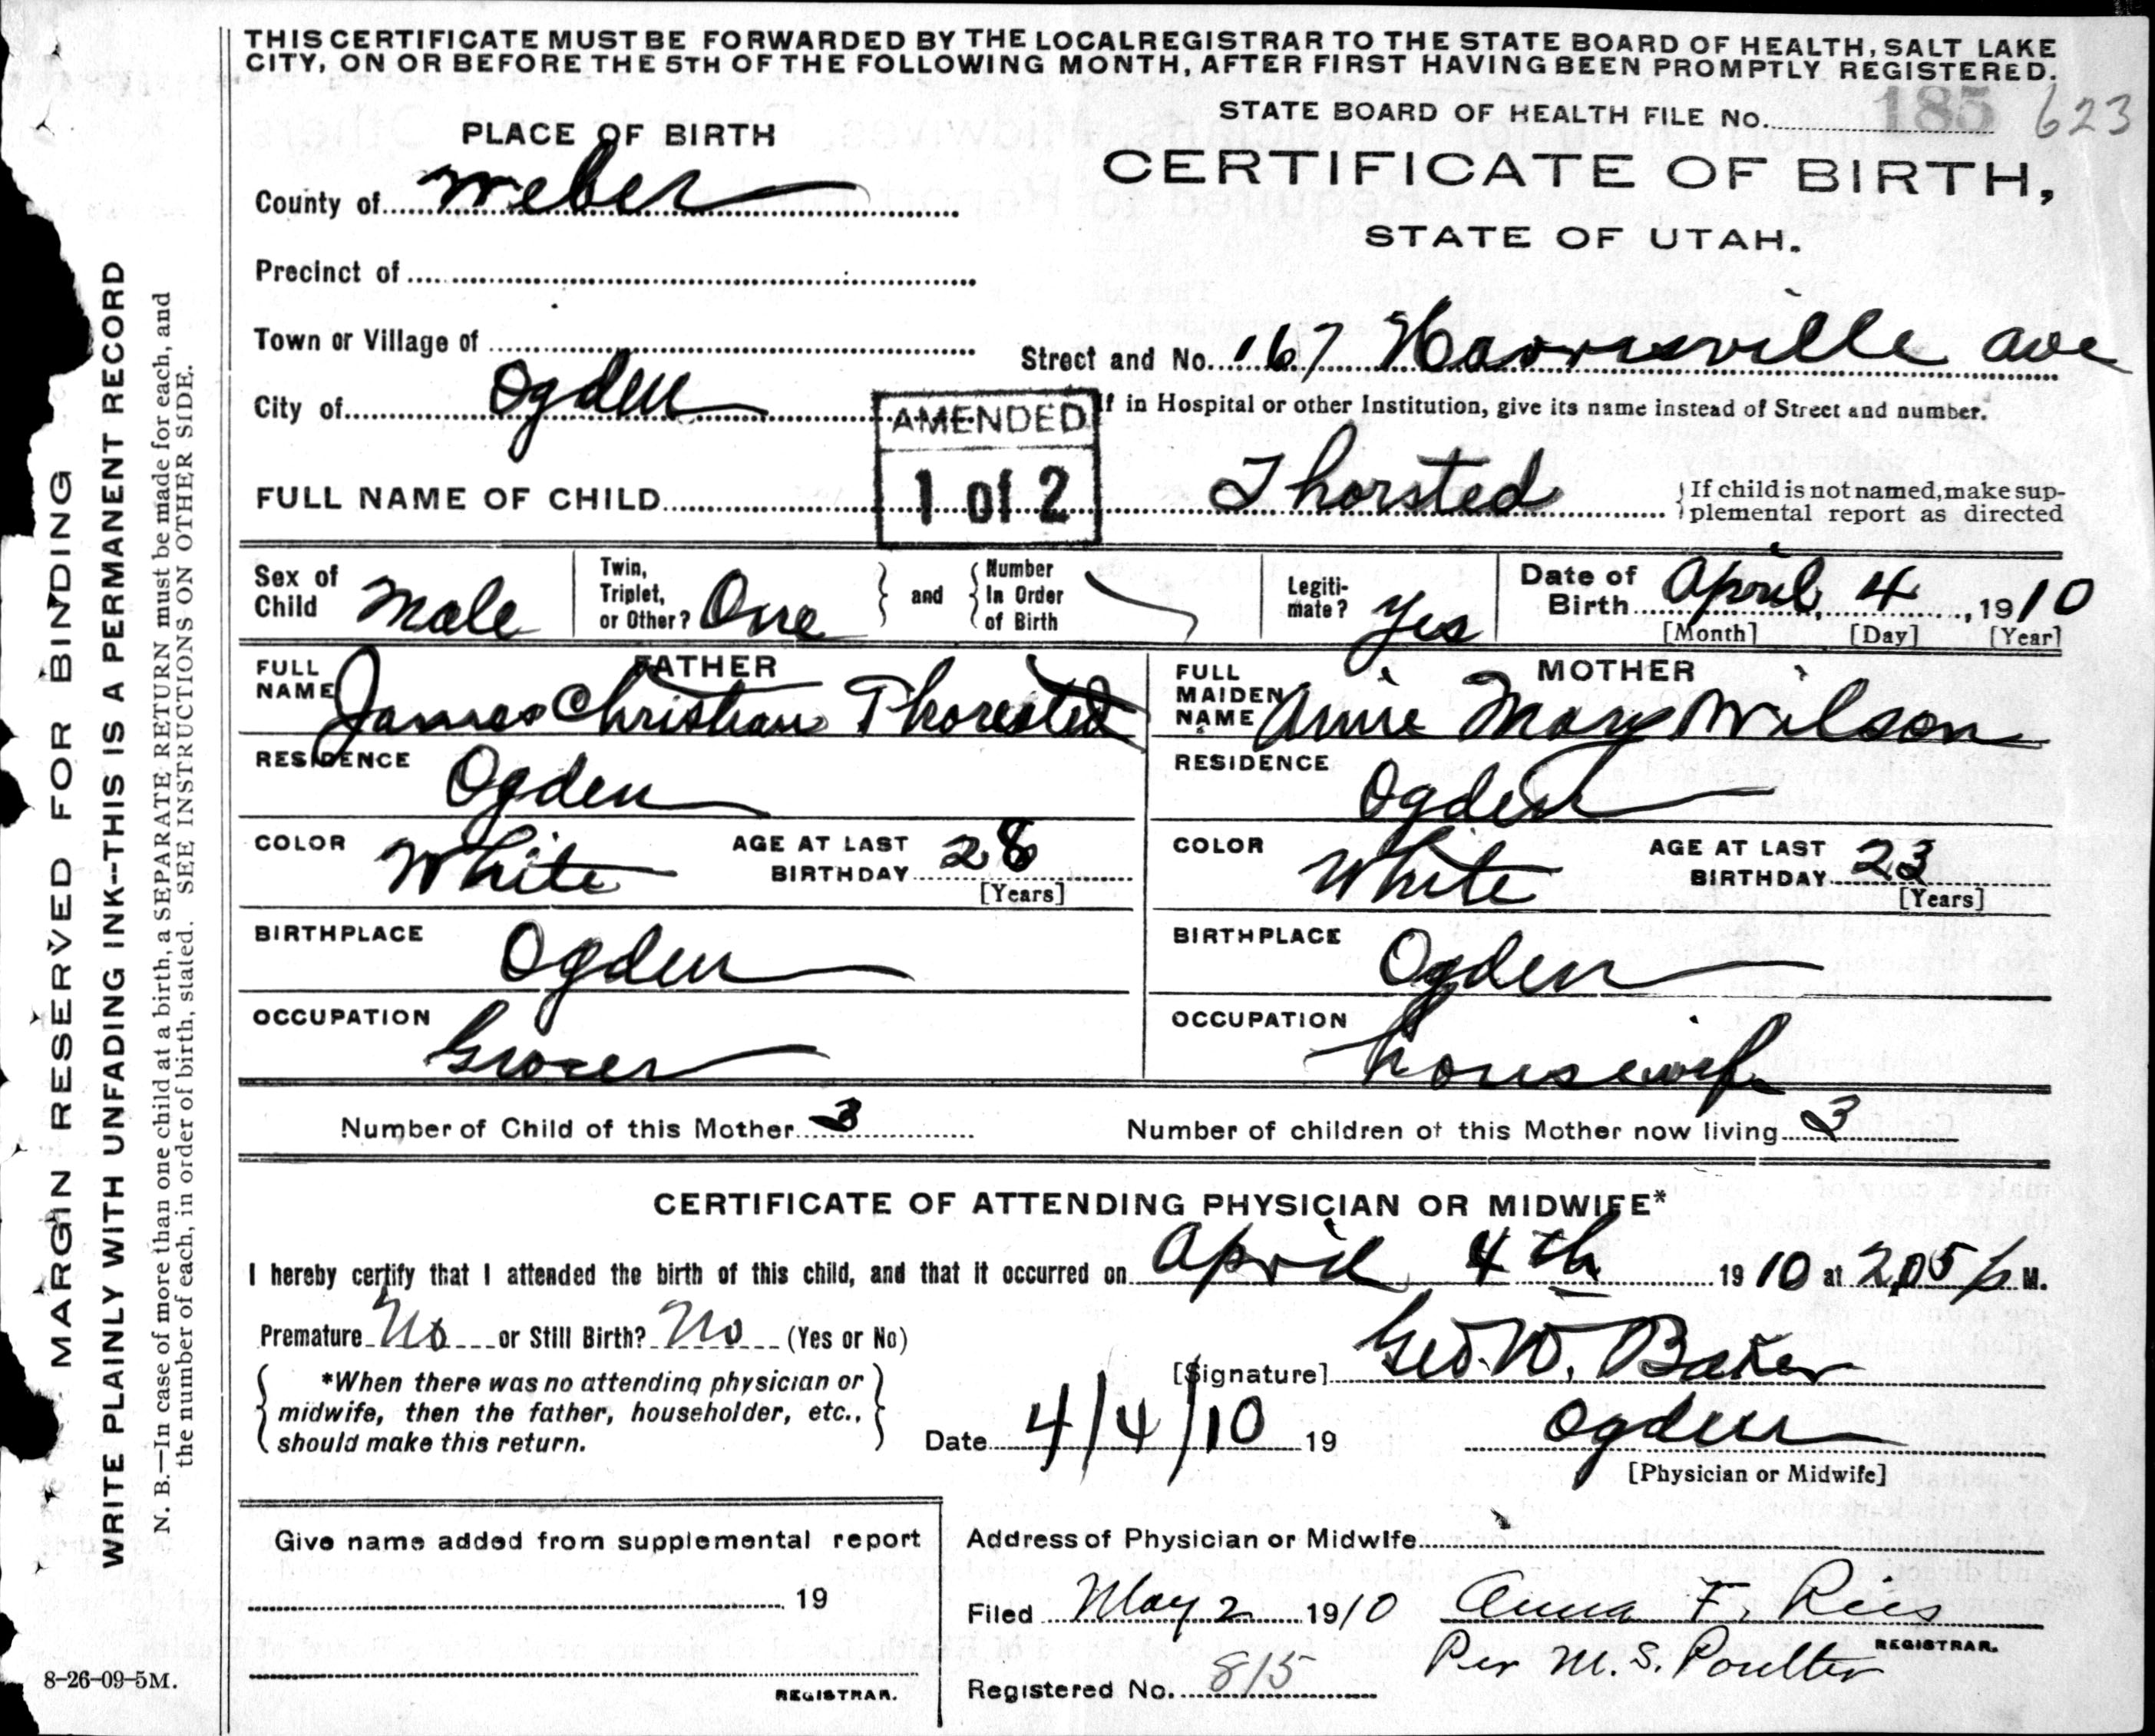 THIS CERTIFICATE MUST BE FORWARDED BY THE LOCAL REGISTRAR TO THE STATE BOARD OF HEALTH, SALT LAKE
CITY, ON OR BEFORE THE 5TH OF THE FOLLOWING MONTH, AFTER FIRST HAVING BEEN PROMPTLY REGISTERED.
STATE BOARD OF HEALTH FILE No. 185 623
PLACE OF BIRTH
CERTIFICATE OF BIRTH,
STATE OF UTAH.
County of Weber
Precinct of
Town or Village of
Street and No. 167 Harrisville ave
City of Ogden
If in Hospital or other Institution, give its name instead of Street and number.
AMENDED
1 of 2
FULL NAME OF CHILD Thorsted
If child is not named, make sup-
plemental report as directed
Sex of Child Male
Twin, Triplet, or Other? One
and Number In Order of Birth
Legiti-mate? Yes
Date of Birth April, 4, 1910
[Month] [Day] [Year]
FATHER
FULL NAME James Christian Thorsted
RESIDENCE Ogden
COLOR White AGE AT LAST BIRTHDAY 28
[Years]
BIRTHPLACE Ogden
OCCUPATION Grocer
MOTHER
FULL MAIDEN NAME Annie Mary Wilson
RESIDENCE Ogden
COLOR White AGE AT LAST BIRTHDAY 23
[Years]
BIRTHPLACE Ogden
OCCUPATION housewife
Number of Child of this Mother 3 Number of children of this Mother now living 3
CERTIFICATE OF ATTENDING PHYSICIAN OR MIDWIFE*
I hereby certify that I attended the birth of this child, and that it occurred on April 4th 1910 at 2,05 p M.
Premature No or Still Birth? No (Yes or No)
*When there was no attending physician or
midwife, then the father, householder, etc.,
should make this return.
[Signature] Geo. W. Baker
Date 4/4/10 19
Ogden
[Physician or Midwife]
Give name added from supplemental report
19
REGISTRAR.
Address of Physician or Midwife
Filed May 2 1910 Anna F. Ries
REGISTRAR.
Per M. S. Poulter
Registered No. 815
8-26-09-5M.
MARGIN RESERVED FOR BINDING
WRITE PLAINLY WITH UNFADING INK--THIS IS A PERMANENT RECORD
N. B.—In case of more than one child at a birth, a SEPARATE RETURN must be made for each, and
the number of each, in order of birth, stated. SEE INSTRUCTIONS ON OTHER SIDE.